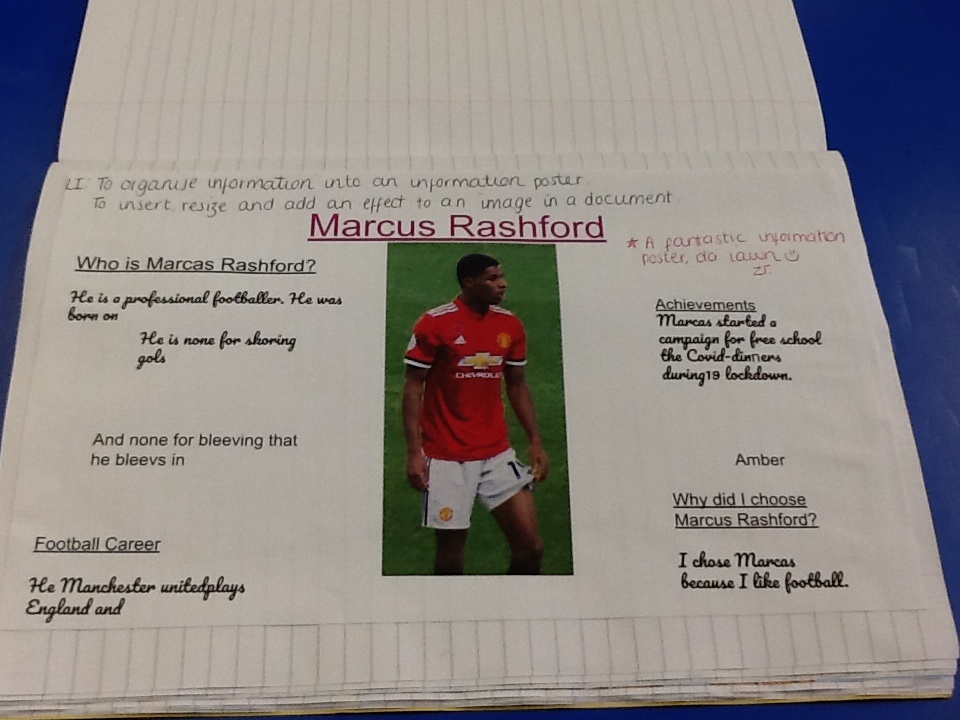 LI: To organise information into an information poster.
To insert, resize and add an effect to an image in a document.
Marcus Rashford
* A fantastic information
poster, da iawn
Who is Marcas Rashford?
He is a professional footballer. He was
born on
He is none for skoring
gols
And none for bleeving that
he bleevs in
Football Career
He Manchester unitedplays
England and
CHEVROLET
Achievements
Marcas started a
campaign for free school
the Covid-dinners
during19 lockdown.
Amber
Why did I choose
Marcus Rashford?
I chose Marcas
because I like football.